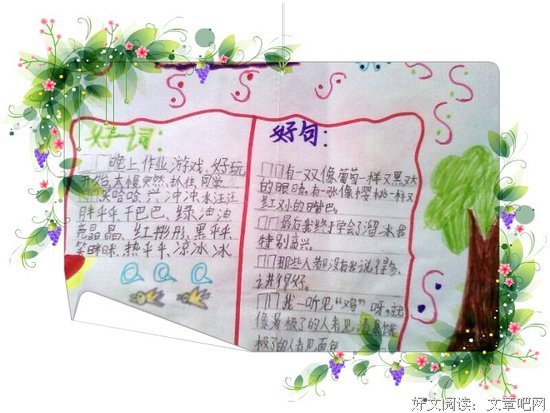 好词:
晚上 作业 游戏 好玩
开始 大嫂 突然 抓住 同学
笑哈哈 兴冲冲 水汪汪
胖乎乎 干巴巴 绿油油
亮晶晶 红彤彤 黑乎乎
笑眯眯 热乎乎 凉冰冰
好句:
有一双像葡萄一样又黑又大
的眼睛,有一张像樱桃一样又
红又小的嘴巴。
最后我终于学会了溜冰我
特别高兴。
那些人看
讲得很好。
我一听见“鸡”呀,就
像
极了的人看见面包
好文阅读:文章吧网